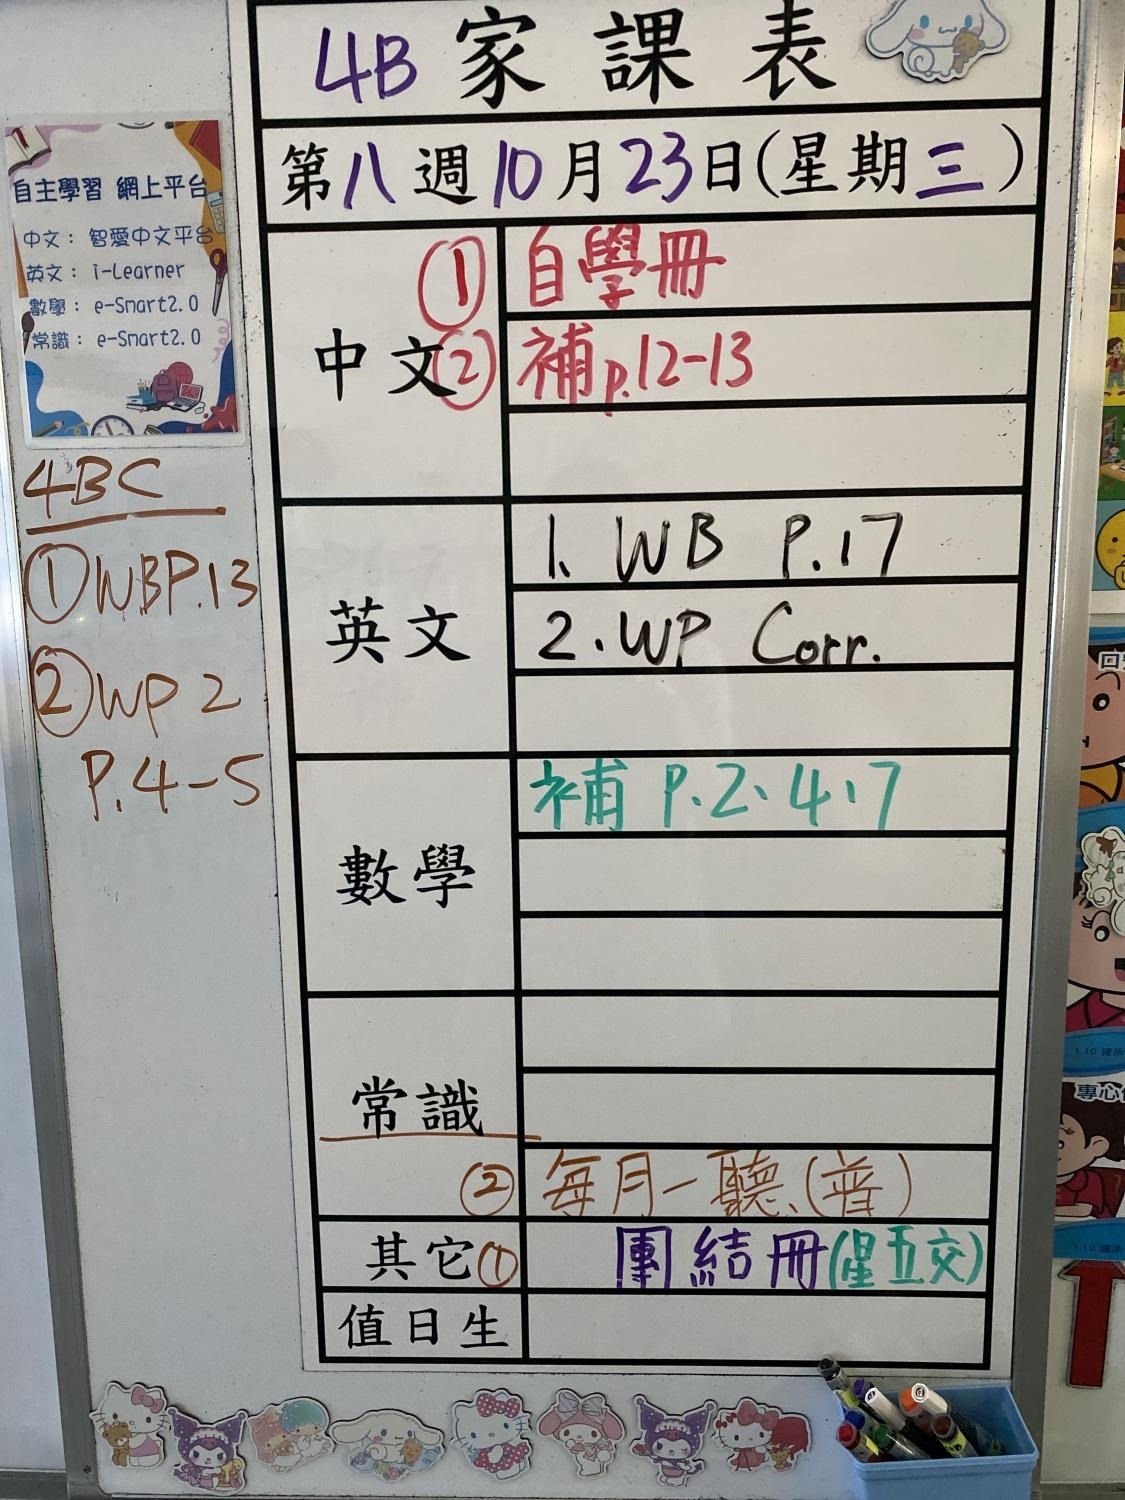 4B 家課表
第八週10月23日(星期三)
自主學習 網上平台
中文： 智愛中文平台
英文： i-Learner
數學： e-Smart2.0
常識： e-Smart2.0
4BC
①WBP.13
②WP 2
P.4-5
中文
① 自學冊
② 補p.12-13
英文
1. WB P.17
2. WP Corr.
數學
補 P.2、4、7
常識
② 每月一聽(普)
其它① 團結冊(星五交)
值日生